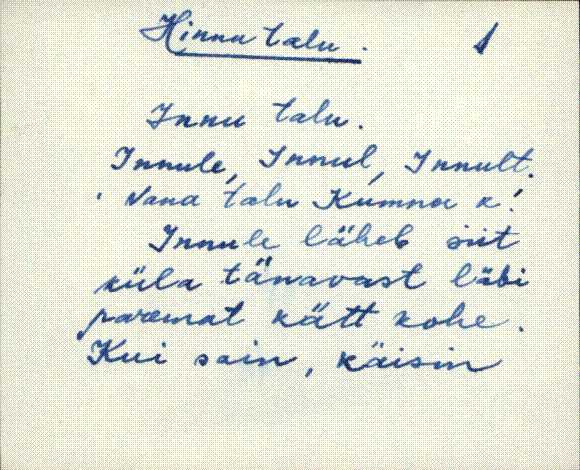 Hinnu talu. 1
Innu talu.
Innule, Innul, Innult.
Vana talu Kumna k.
Innule läheb siit
küla tänavast läbi
paremat kätt kohe.
Kui sain, käisin